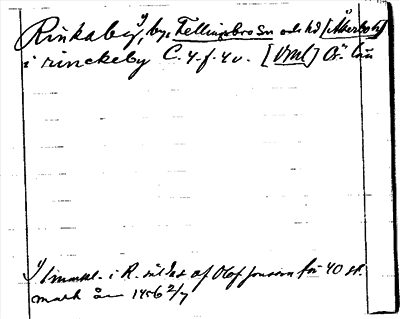 Rinkaby 1), by, Fellingsbro Sn och hd [Åkerbo hd]
i rinckeby C. 4. f. 40. [Vml] Ör. län
1) 1 markl. i R. såldes af Olof Jonsson för 40 st.
mark år 1456 2/7